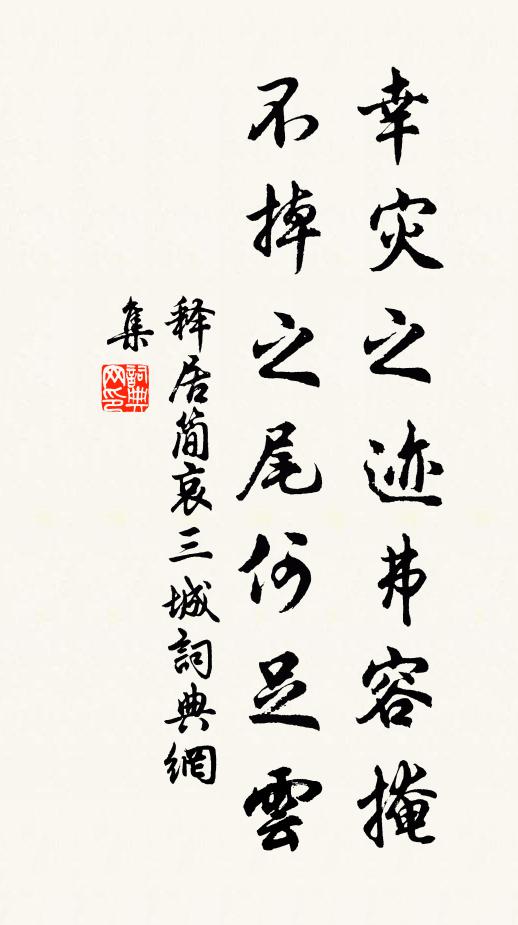 幸灾之迹弗容掩
不掉之尾何足雲
释居简哀三城詞典網
集
詞典网印